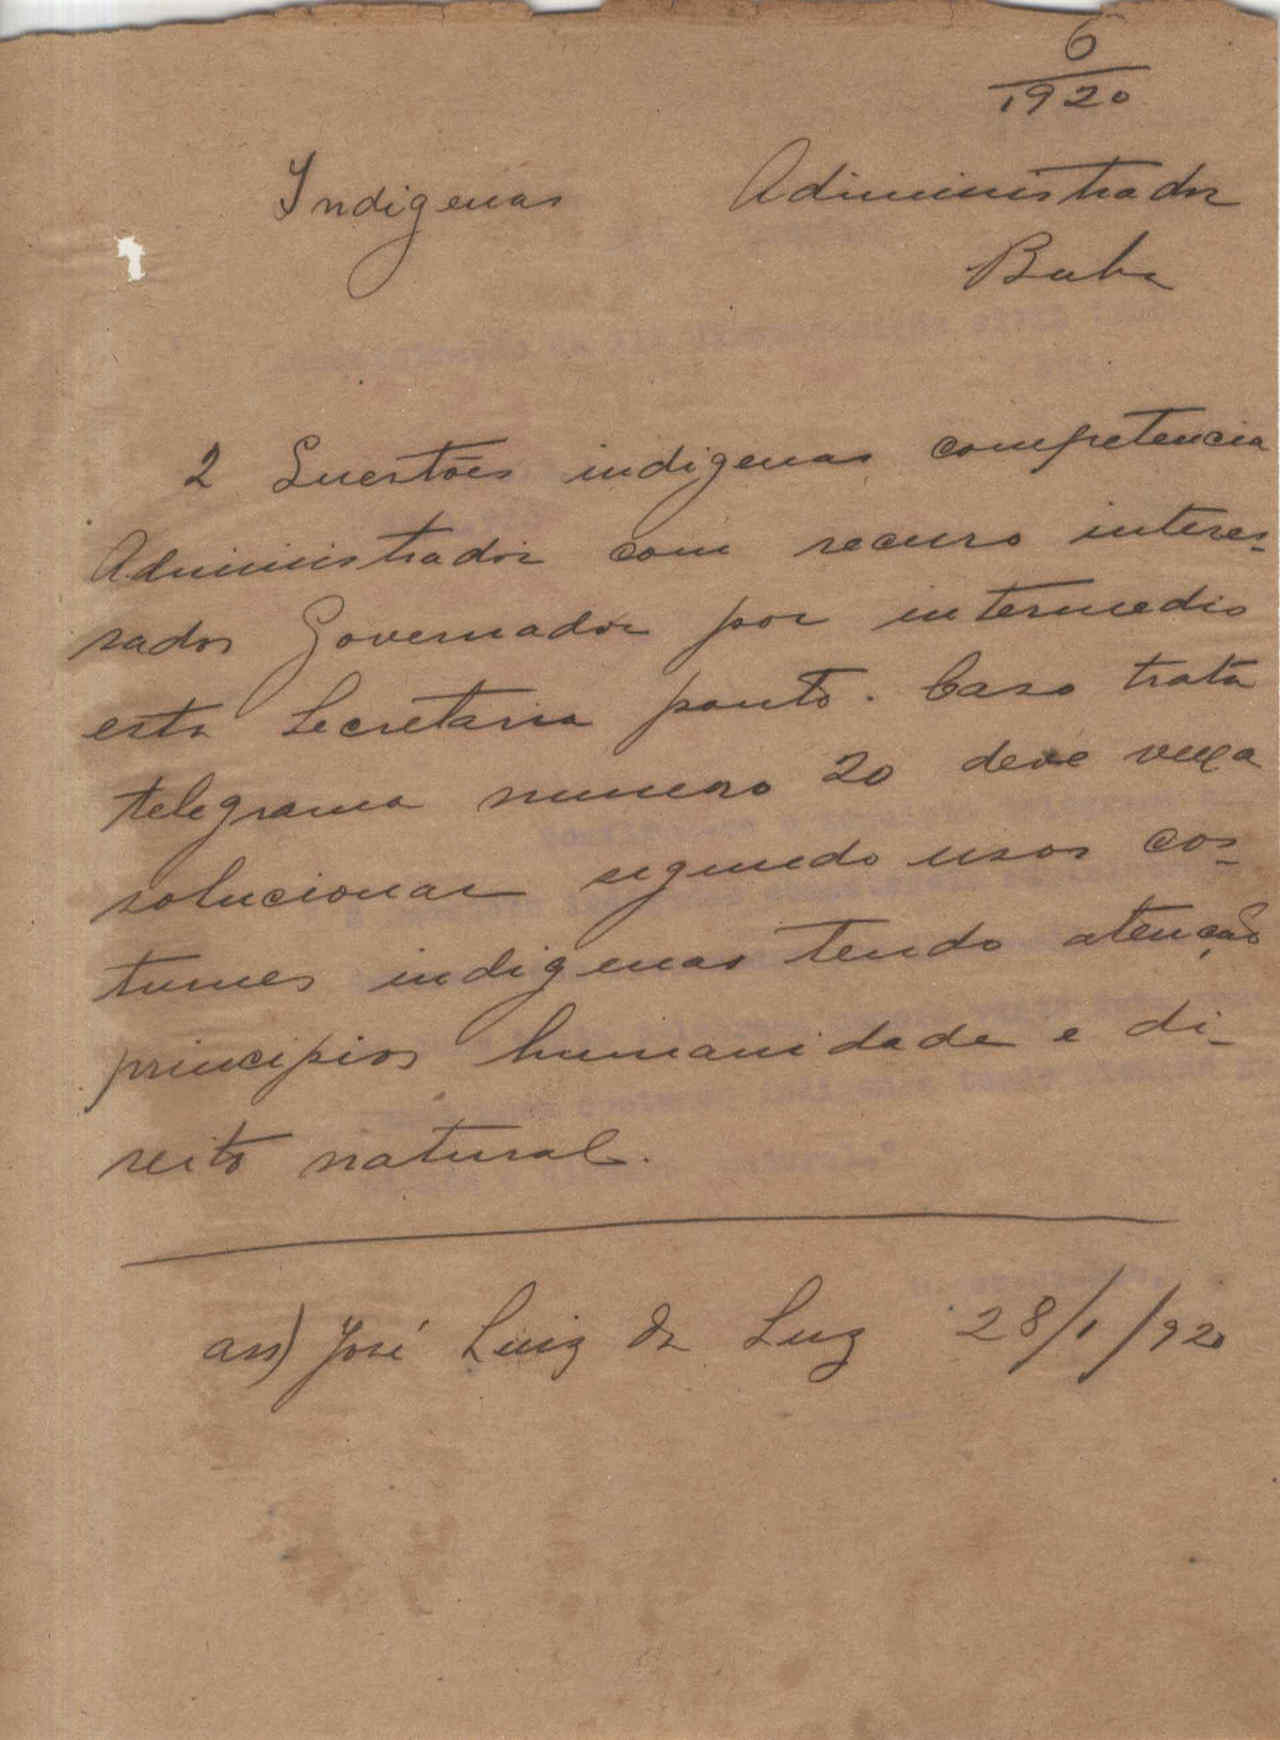 6
1920
Indigenas Administrador
Buba
2 Questões indigenas competencia
Administrador com recurso interes-
sados Governador por intermedio
esta Secretaria ponto. Caso trata
telegrama numero 20 deve vexa
solucionar segundo usos cos-
tumes indigenas tendo atenção
principios humanidade e di-
reito natural.
ass) José Luiz da Luz 28/1/920